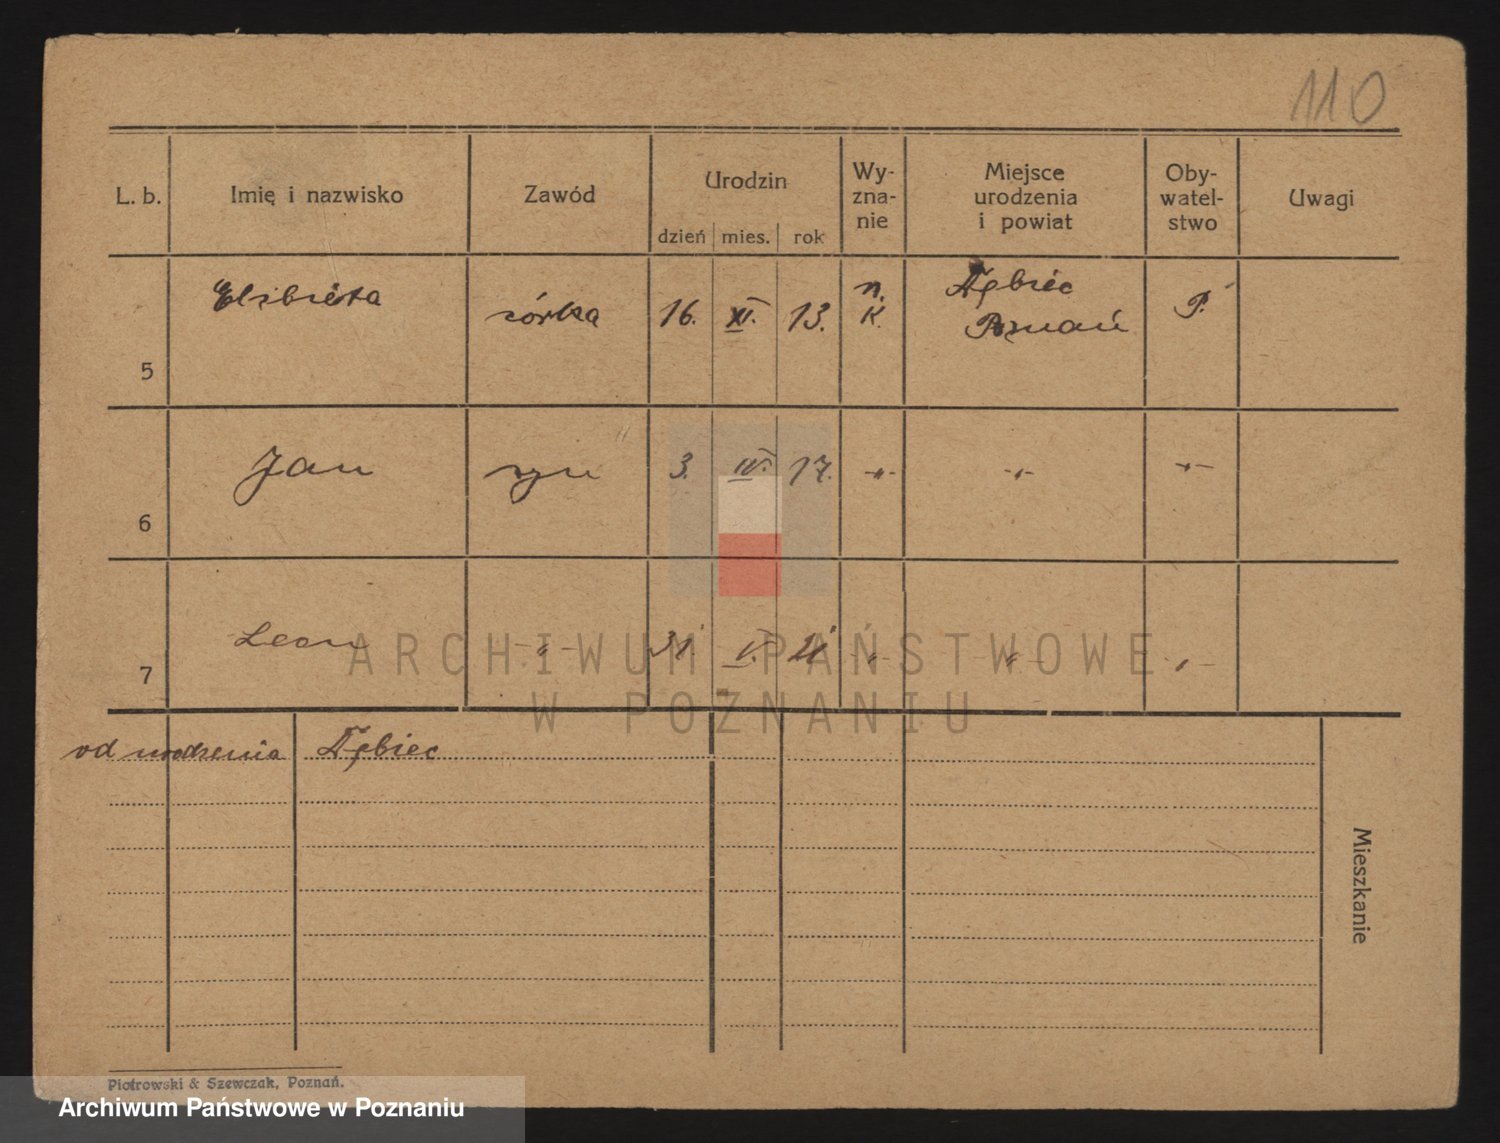 110
L. b. Imię i nazwisko Zawód Urodzin Wy-zna-nie Miejsce urodzenia i powiat Oby-watel-stwo Uwagi
dzień mies. rok
5 Elżbieta córka 16. XI. 13. n. K. Dębiec Poznań P.
6 Jan syn 3. IV. 17. -"- -"- -"-
7 Leon -"- 31. V. 21 -"- -"- -"-
od urodzenia Dębiec
Mieszkanie
Piotrowski & Szewczak, Poznań.
ARCHIWUM PAŃSTWOWE
W POZNANIU
Archiwum Państwowe w Poznaniu